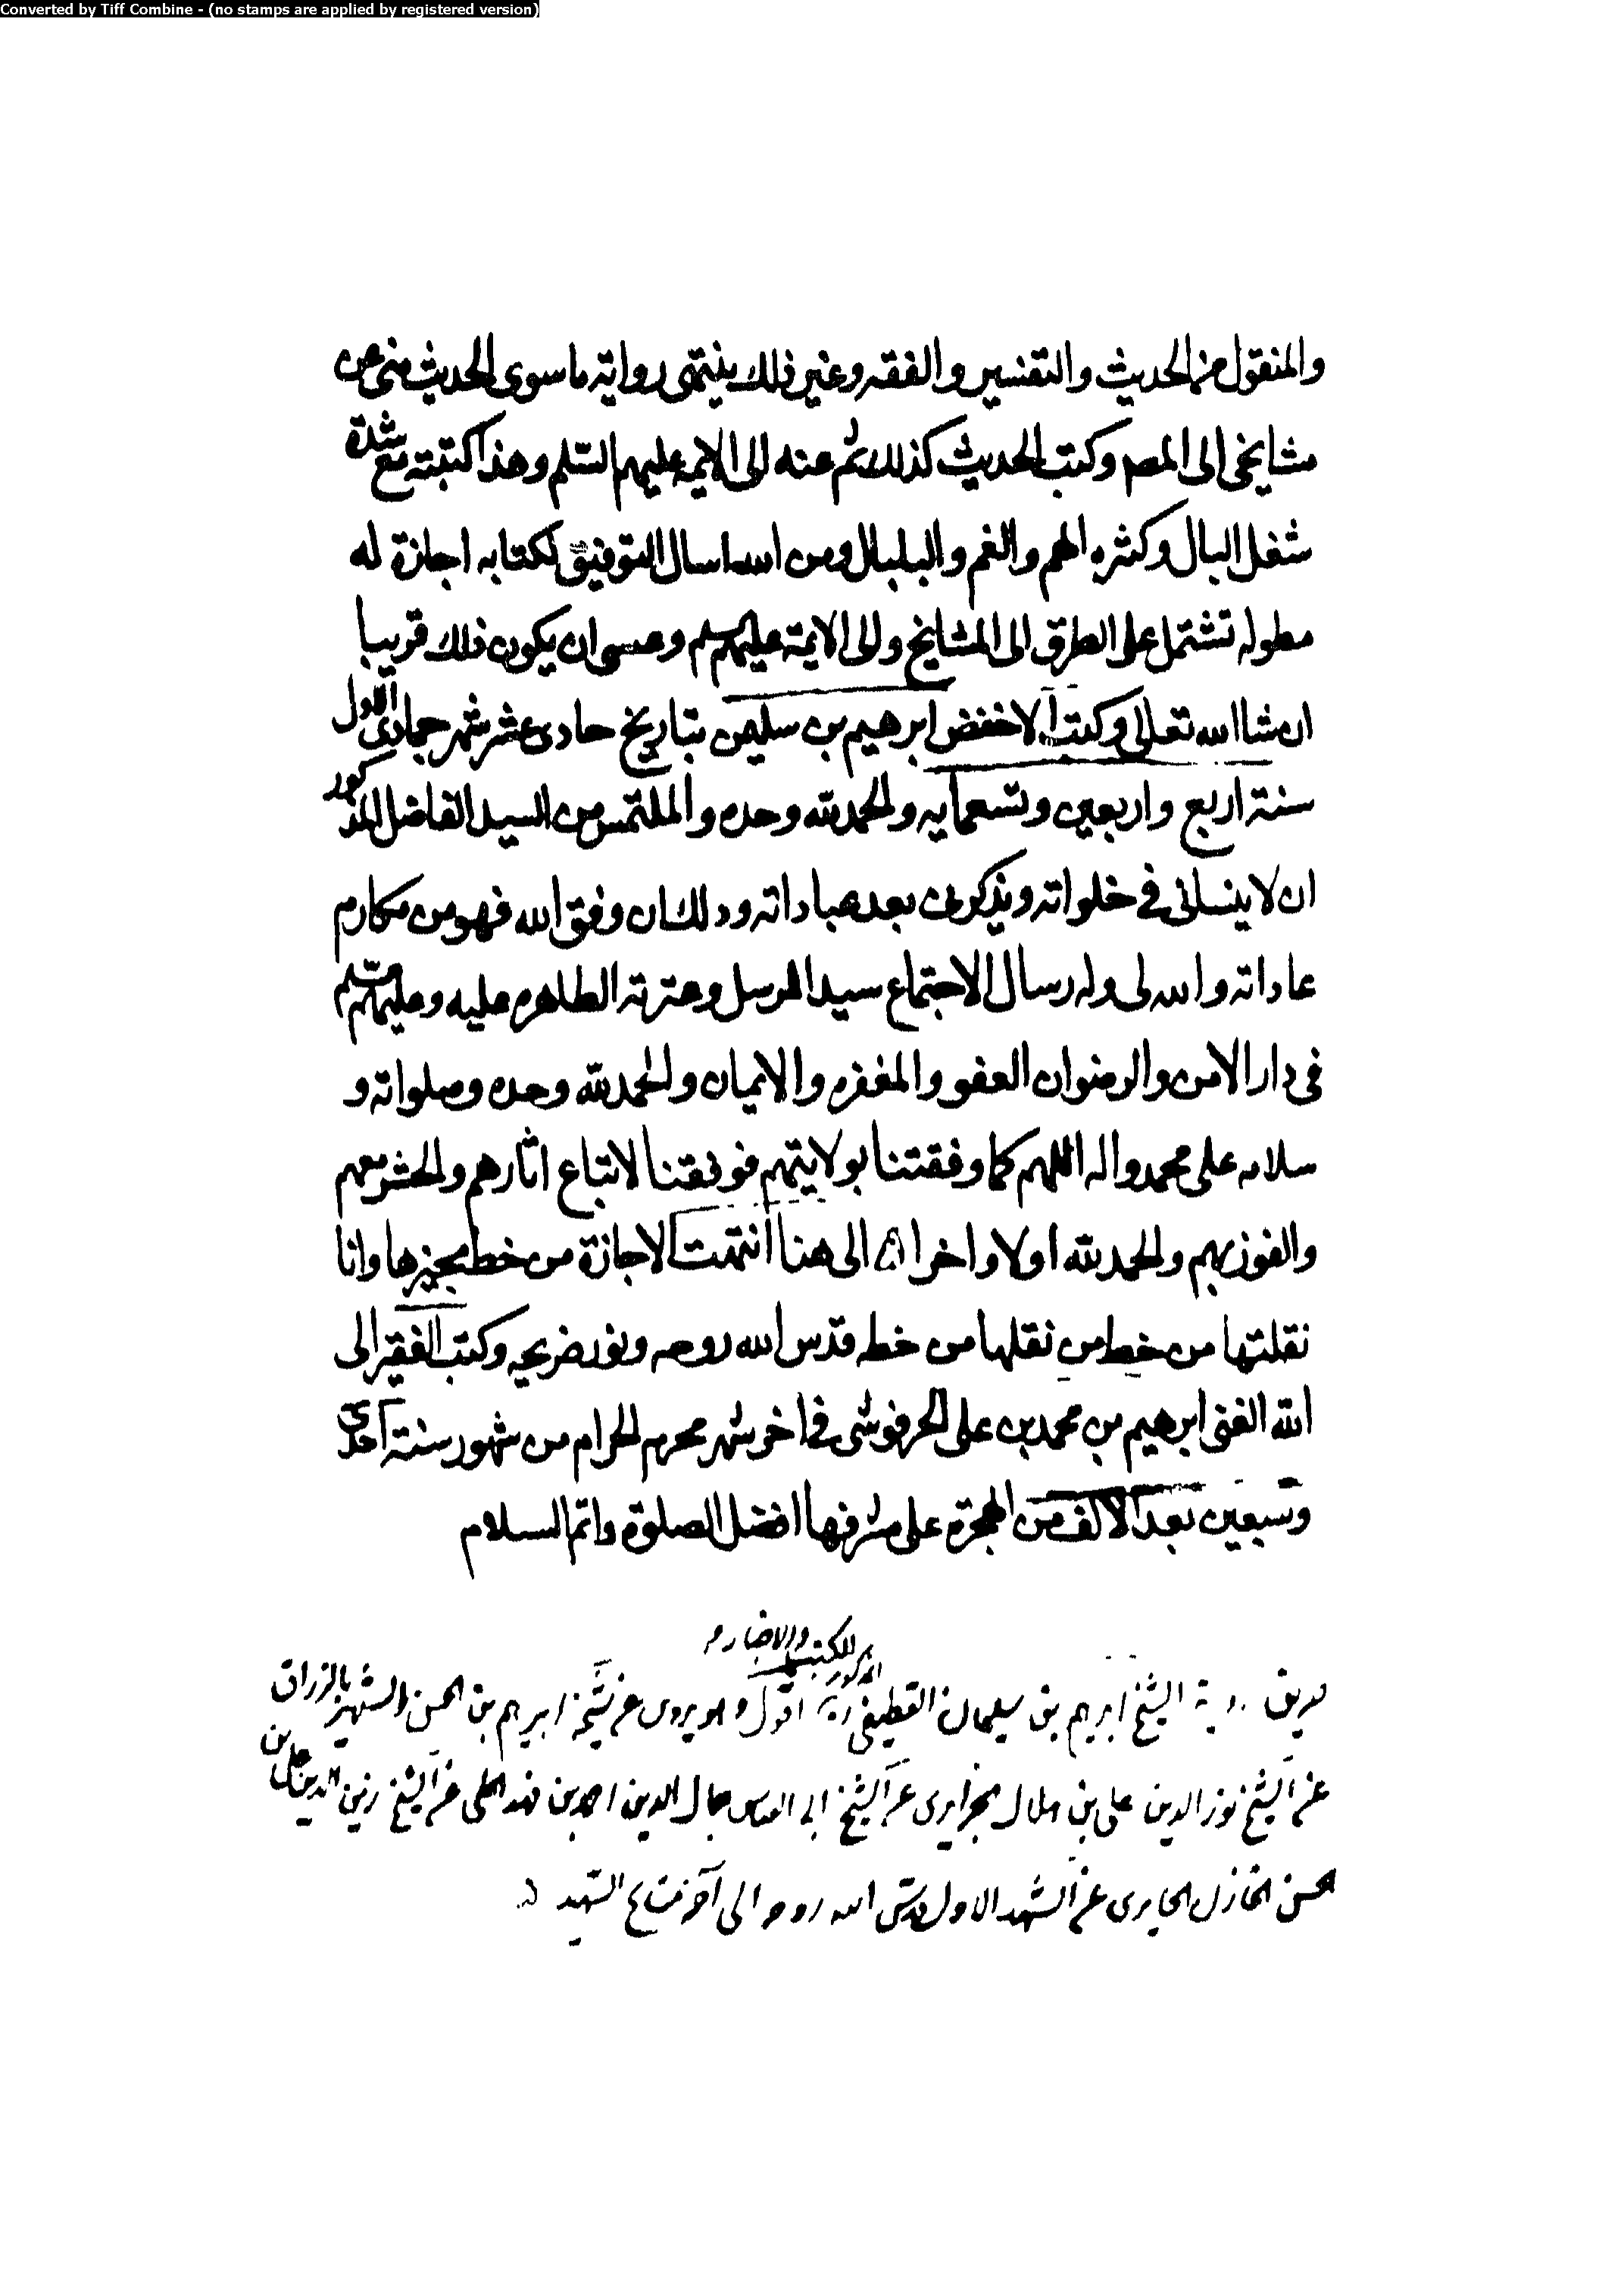 Converted by Tiff Combine - (no stamps are applied by registered version)
والمنقول من الحديث والتفسير والفقه وغير ذلك ينتهى روايته ما سوى الحديث منى عن
مشايخى الى المص وكتب الحديث كذلك ثم عنه الى الايمه عليهم السلم وهذا كتبته مع شدة
شغل البال وكثره الهم والغم والبلبال ومن الله اسال التوفيق لكتابه اجازة له
مطوله تشتمل على الطرق الى المشايخ والى الايمة عليهم سلم وعسى ان يكون ذلك قريبا
ان شا الله تعالى وكتب الاخفض ابرهيم بن سليمن بتاريخ حادى عشر شهر جمادى الاول
سنة اربع واربعين وتسعمايه والحمد لله وحده والملتمس من السيد الفاضل المذكور
ان لا ينسانى فى خلواته ويذكرنى بعد عباداته وذلك ان وفق الله فهو من مكارم
عاداته والله لى وله رسال الاجتماع سيد المرسل وعترته الطاهره عليه وعليهم سلم
فى دار الامن والرضوان العفو والمغفره والايمان والحمد لله وحده وصلواته و
سلامه على محمد واله اللهم كما وفقتنا بولايتهم فوفقنا لاتباع اثارهم والحشر معهم
والفوز بهم والحمد لله اولا واخرا ه الى هنا انتهت الاجازة من خط مجيزها وانا
نقلتها من خط من نقلها من خطه قدس الله روحه ونور ضريحه وكتب الفقير الى
الله الغنى ابرهيم بن محمد بن على الحرفوشى فى اخر شهر محرم الحرام من شهور سنة احدى
وسبعين بعد الالف من الهجرة على مشرفها افضل الصلوة واتم السلام
للكتب والاخبار
المذكور
طريق رواية الشيخ ابرهيم بن سليمان القطيفى اقول وهو يروى عن شيخه ابرهيم بن الحسن الشهير بالزراق
عن الشيخ نور الدين على بن هلال الجزايرى عن الشيخ ابى العباس جمال الدين احمد بن فهد الحلى عن الشيخ زين الدين على بن
الحسن الخازن الحايرى عن الشهيد الاول قدس الله روحه الى آخر مشايخ الشهيد ه